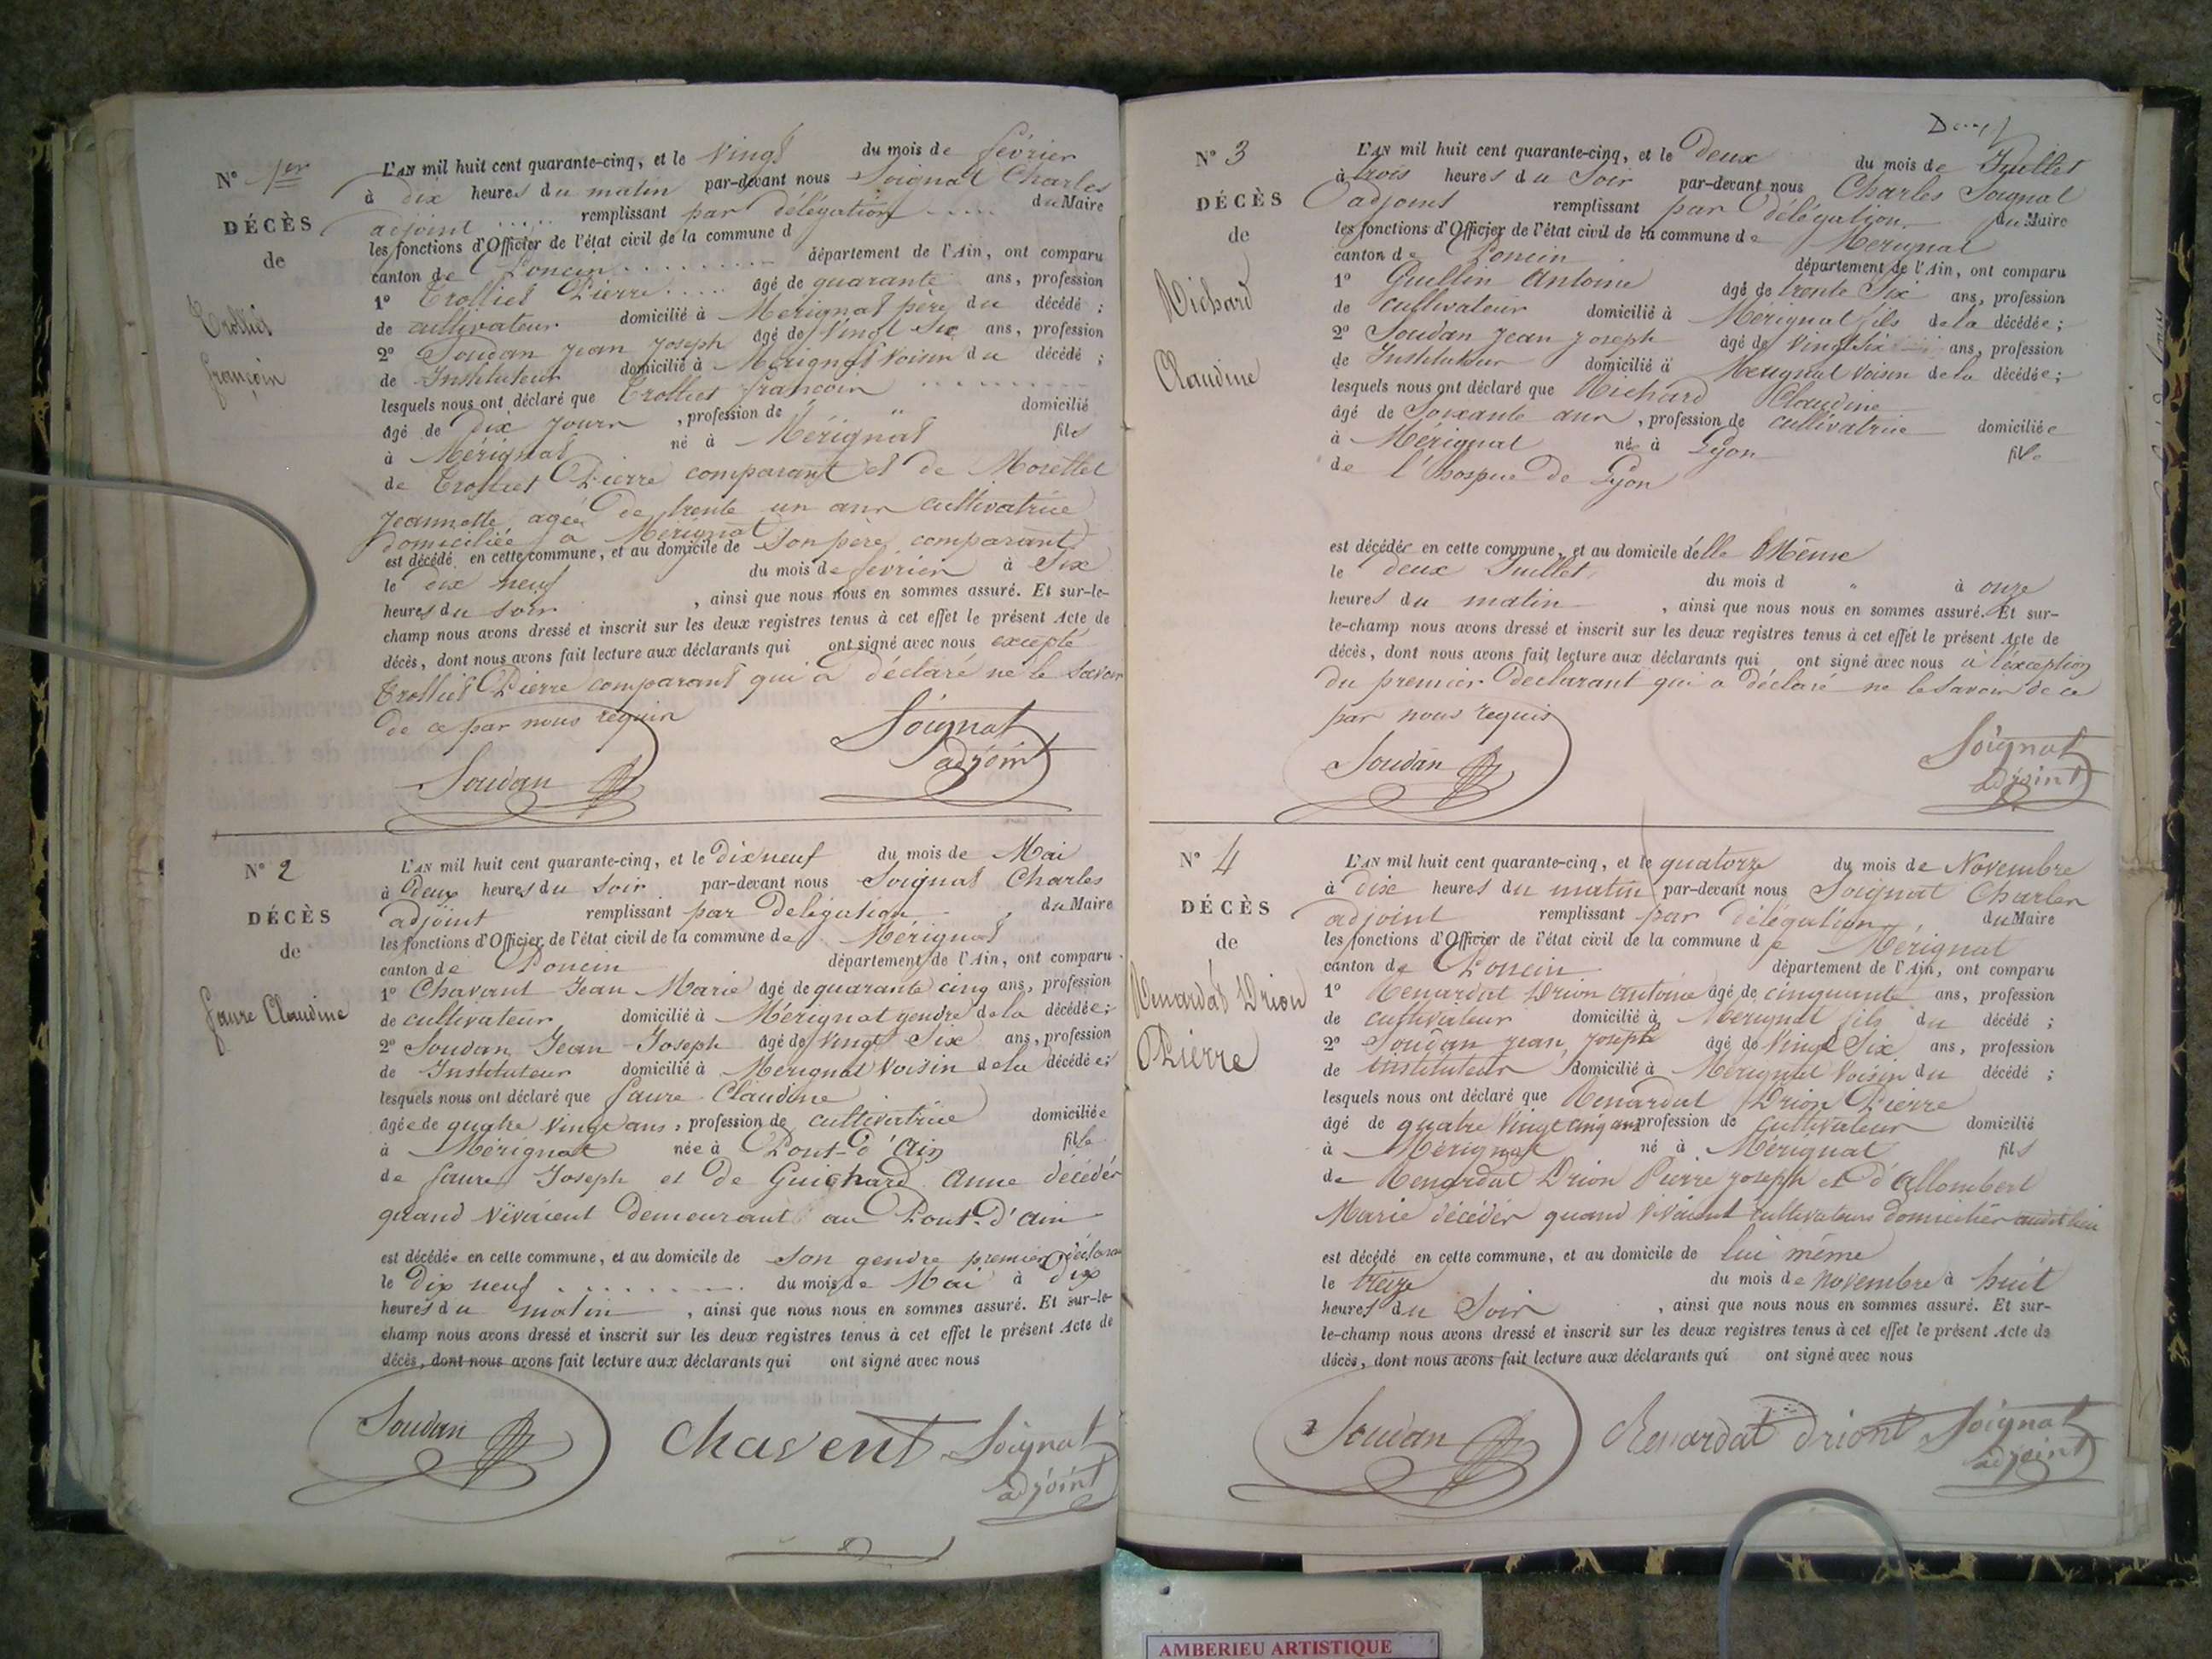 N° 1er
DÉCÈS
de
Trolliet
françois
L'AN mil huit cent quarante-cinq, et le Vingt du mois de février
à dix heures du matin par-devant nous Soignat Charles
adjoint remplissant par délégation du Maire
les fonctions d'Officier de l'état civil de la commune d
canton de Poncin département de l'Ain, ont comparu
1° Trolliet Pierre âgé de quarante ans, profession
de cultivateur domicilié à Mérignat père du décédé ;
2° Soudan Jean Joseph âgé de Vingt Six ans, profession
de Instituteur domicilié à Mérignat Voisin du décédé ;
lesquels nous ont déclaré que Trolliet françois
âgé de dix jours , profession de " domicilié
à Mérignat né à Mérignat fils
de Trolliet Pierre comparant et de Morellet
Jeannette, agée de trente un ans cultivatrice
domiciliée à Mérignat
est décédé en cette commune, et au domicile de Son père comparant
le dix neuf du mois de février à Six
heures du Soir , ainsi que nous nous en sommes assuré. Et sur-le-
champ nous avons dressé et inscrit sur les deux registres tenus à cet effet le présent Acte de
décès, dont nous avons fait lecture aux déclarants qui ont signé avec nous excepté
Trolliet Pierre comparant qui a déclaré ne le Savoir
de ce par nous requis
Soudan
Soignat
adjoint
N° 2
DÉCÈS
de
faure Claudine
L'AN mil huit cent quarante-cinq, et le dix neuf du mois de Mai
à Deux heures du Soir par-devant nous Soignat Charles
adjoint remplissant par délégation du Maire
les fonctions d'Officier de l'état civil de la commune de Mérignat
canton de Poncin département de l'Ain, ont comparu
1° Chavent Jean Marie âgé de quarante cinq ans, profession
de cultivateur domicilié à Mérignat gendre de la décédée ;
2° Soudan Jean Joseph âgé de Vingt Six ans, profession
de Instituteur domicilié à Mérignat Voisin de la décédée ;
lesquels nous ont déclaré que faure Claudine
âgée de quatre Vingt ans, profession de cultivatrice domiciliée
à Mérignat née à Pont-d'Ain fille
de faure Joseph et de Guichard Anne décédés
quand Vivaient Demeurant au Pont-d'ain
est décédée en cette commune, et au domicile de Son gendre premier
le Dix neuf du mois de Mai à dix
heures du matin , ainsi que nous nous en sommes assuré. Et sur-le-
champ nous avons dressé et inscrit sur les deux registres tenus à cet effet le présent Acte de
décès, dont nous avons fait lecture aux déclarants qui ont signé avec nous
Soudan
Chavent
Soignat
adjoint
N° 3
DÉCÈS
de
Richard
Claudine
L'AN mil huit cent quarante-cinq, et le Deux du mois de Juillet
à trois heures du Soir par-devant nous Charles Soignat
adjoint remplissant par Délégation du Maire
les fonctions d'Officier de l'état civil de la commune de Mérignat
canton de Poncin département de l'Ain, ont comparu
1° Guillin Antoine âgé de trente Six ans, profession
de cultivateur domicilié à Mérignat fils de la décédée ;
2° Soudan Jean Joseph âgé de Vingt Six ans, profession
de Instituteur domicilié à Mérignat Voisin de la décédée ;
lesquels nous ont déclaré que Richard Claudine
âgé de Soixante ans , profession de cultivatrice domiciliée
à Mérignat née à Lyon fille
de l'hospice de Lyon
est décédée en cette commune, et au domicile d'elle Même
le deux Juillet du mois d " à onze
heures du matin , ainsi que nous nous en sommes assuré. Et sur-
le-champ nous avons dressé et inscrit sur les deux registres tenus à cet effet le présent Acte de
décès, dont nous avons fait lecture aux déclarants qui ont signé avec nous à l'exception
du premier déclarant qui a déclaré ne le savoir de ce
par nous requis
Soudan
Soignat
adjoint
N° 4
DÉCÈS
de
Renardat Drion
Pierre
L'AN mil huit cent quarante-cinq, et le quatorze du mois de Novembre
à dix heures du matin par-devant nous Soignat Charles
adjoint remplissant par délégation du Maire
les fonctions d'Officier de l'état civil de la commune de Mérignat
canton de Poncin département de l'Ain, ont comparu
1° Renardat Drion Antoine âgé de cinquante ans, profession
de cultivateur domicilié à Mérignat fils du décédé ;
2° Soudan Jean Joseph âgé de Vingt Six ans, profession
de instituteur domicilié à Mérignat Voisin du décédé ;
lesquels nous ont déclaré que Renardat Drion Pierre
âgé de quatre Vingt cinq ans profession de Cultivateur domicilié
à Mérignat né à Mérignat fils
de Renardat Drion Pierre Joseph et d'Allombert
Marie décédés quand Vivaient cultivateurs domiciliés audit lieu
est décédé en cette commune, et au domicile de lui même
le treize du mois de novembre à huit
heures du Soir , ainsi que nous nous en sommes assuré. Et sur-
le-champ nous avons dressé et inscrit sur les deux registres tenus à cet effet le présent Acte de
décès, dont nous avons fait lecture aux déclarants qui ont signé avec nous
Soudan
Renardat Driont
Soignat
adjoint
AMBERIEU ARTISTIQUE